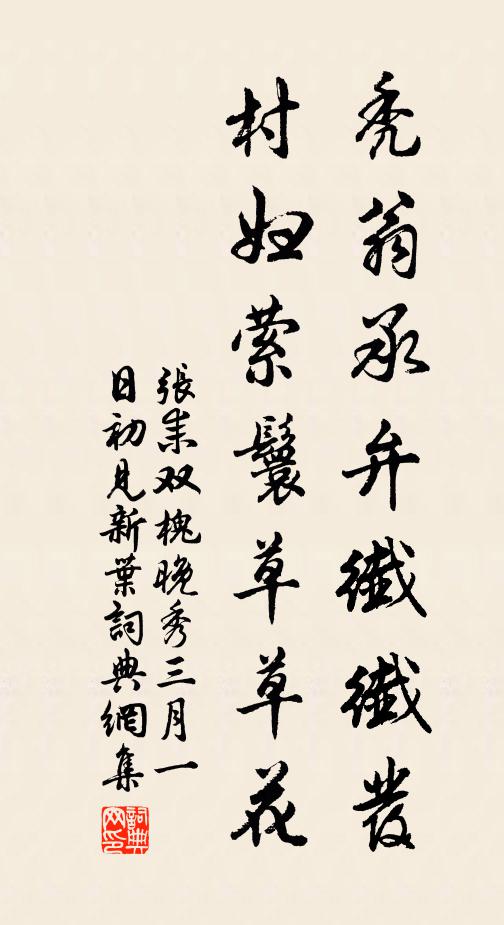 禿翁承弁纖纖發
村婦縈鬟草草花
張耒双槐晚秀三月一
日初見新葉詞典網集
詞典
网印